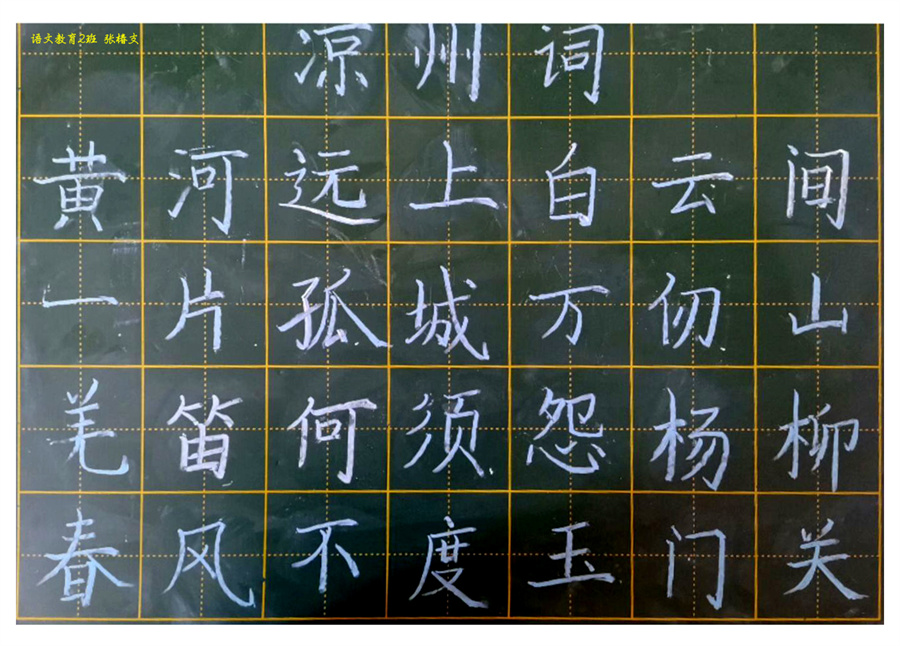 语文教育2班 张椿支
凉州词
黄河远上白云间
一片孤城万仞山
羌笛何须怨杨柳
春风不度玉门关